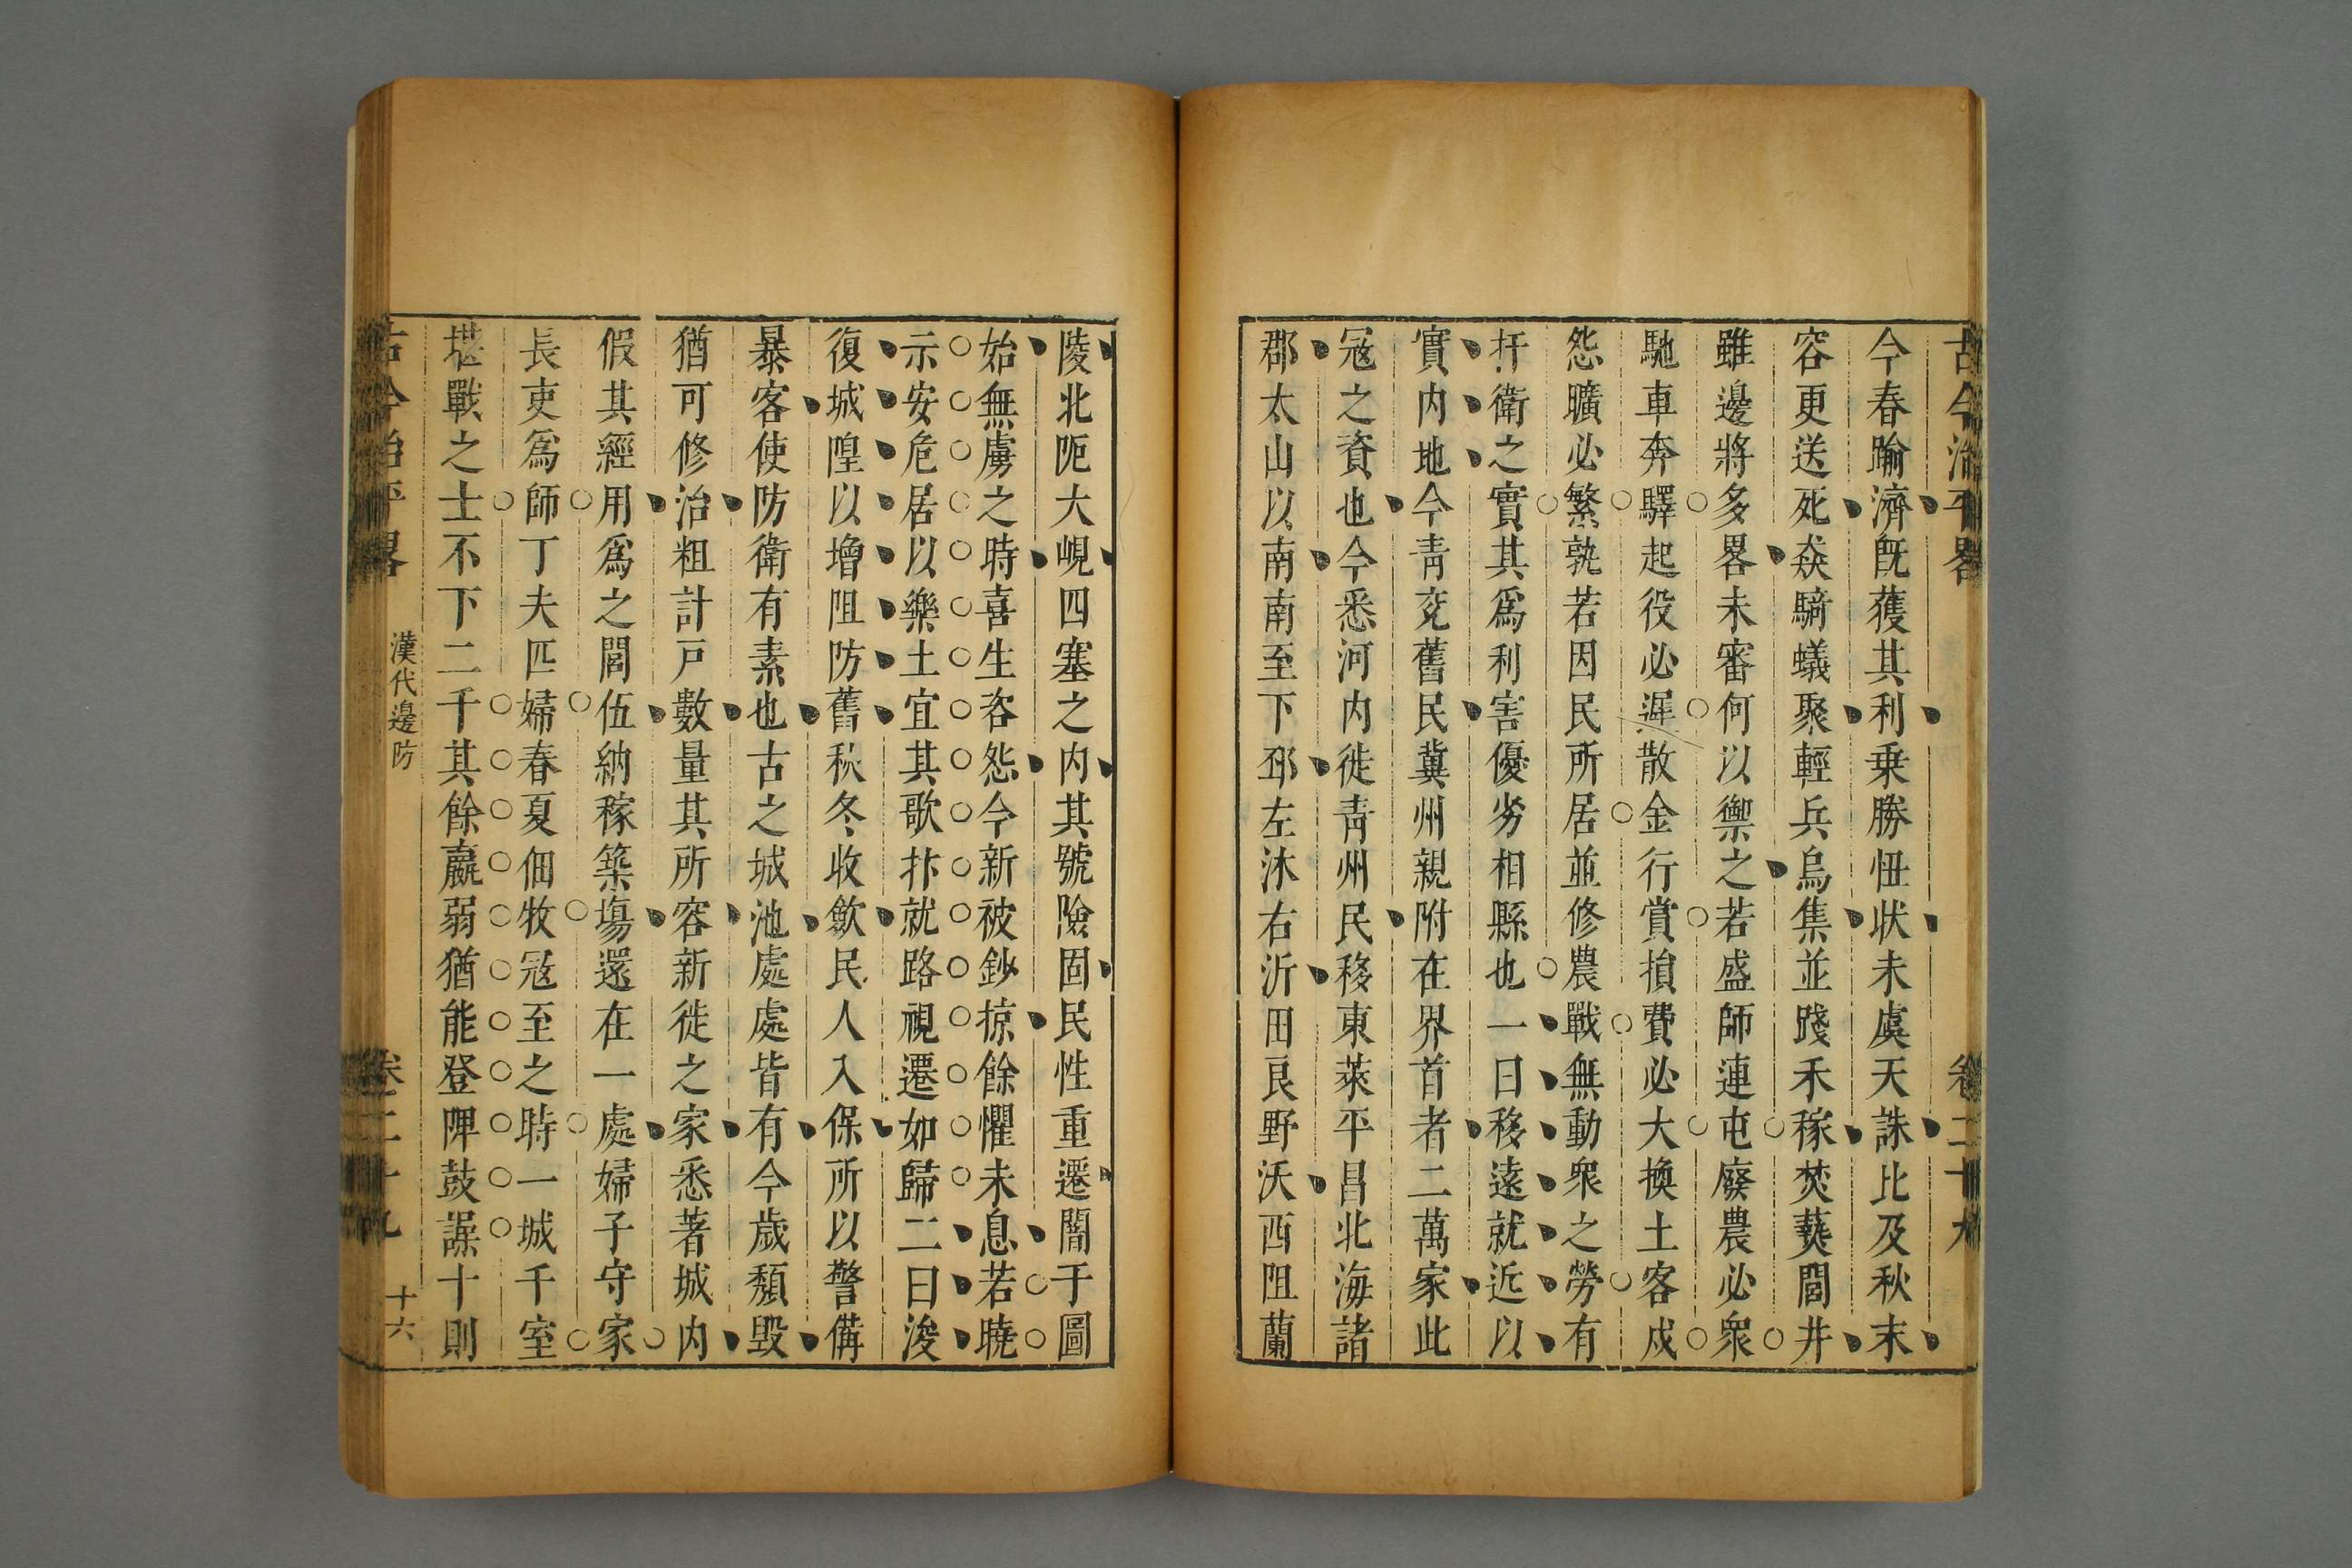 古今治平畧 卷二十九
今春踰濟既獲其利乗勝忸状未虞天誅比及秋末
容更送死猋騎蟻聚輕兵烏集並踐禾稼焚爇閭井
雖邊將多畧未審何以禦之若盛師連屯廢農必衆
馳車奔驛起役必遲散金行賞損費必大換土客戍
怨曠必繁孰若因民所居並修農戰無動衆之勞有
扞衛之實其爲利害優劣相縣也一曰移遠就近以
實内地今青兗舊民冀州親附在界首者二萬家此
冦之資也今悉河内徙青州民移東萊平昌北海諸
郡太山以南南至下邳左沐右沂田良野沃西阻蘭
陵北阨大峴四塞之内其號險固民性重遷闇于圖
始無虜之時喜生咨怨今新被鈔掠餘懼未息若曉
示安危居以樂土宜其歌抃就路視遷如歸二曰浚
復城隍以增阻防舊秋冬收斂民人入保所以警備
暴客使防衛有素也古之城池處處皆有今歲頽毀
猶可修治粗計戸數量其所容新徙之家悉著城内
假其經用爲之閭伍納稼築塲還在一處婦子守家
長吏爲師丁夫匹婦春夏佃牧冦至之時一城千室
堪戰之士不下二千其餘羸弱猶能登陴鼓譟十則
古今治平畧 漢代邊防 卷二十九 十六